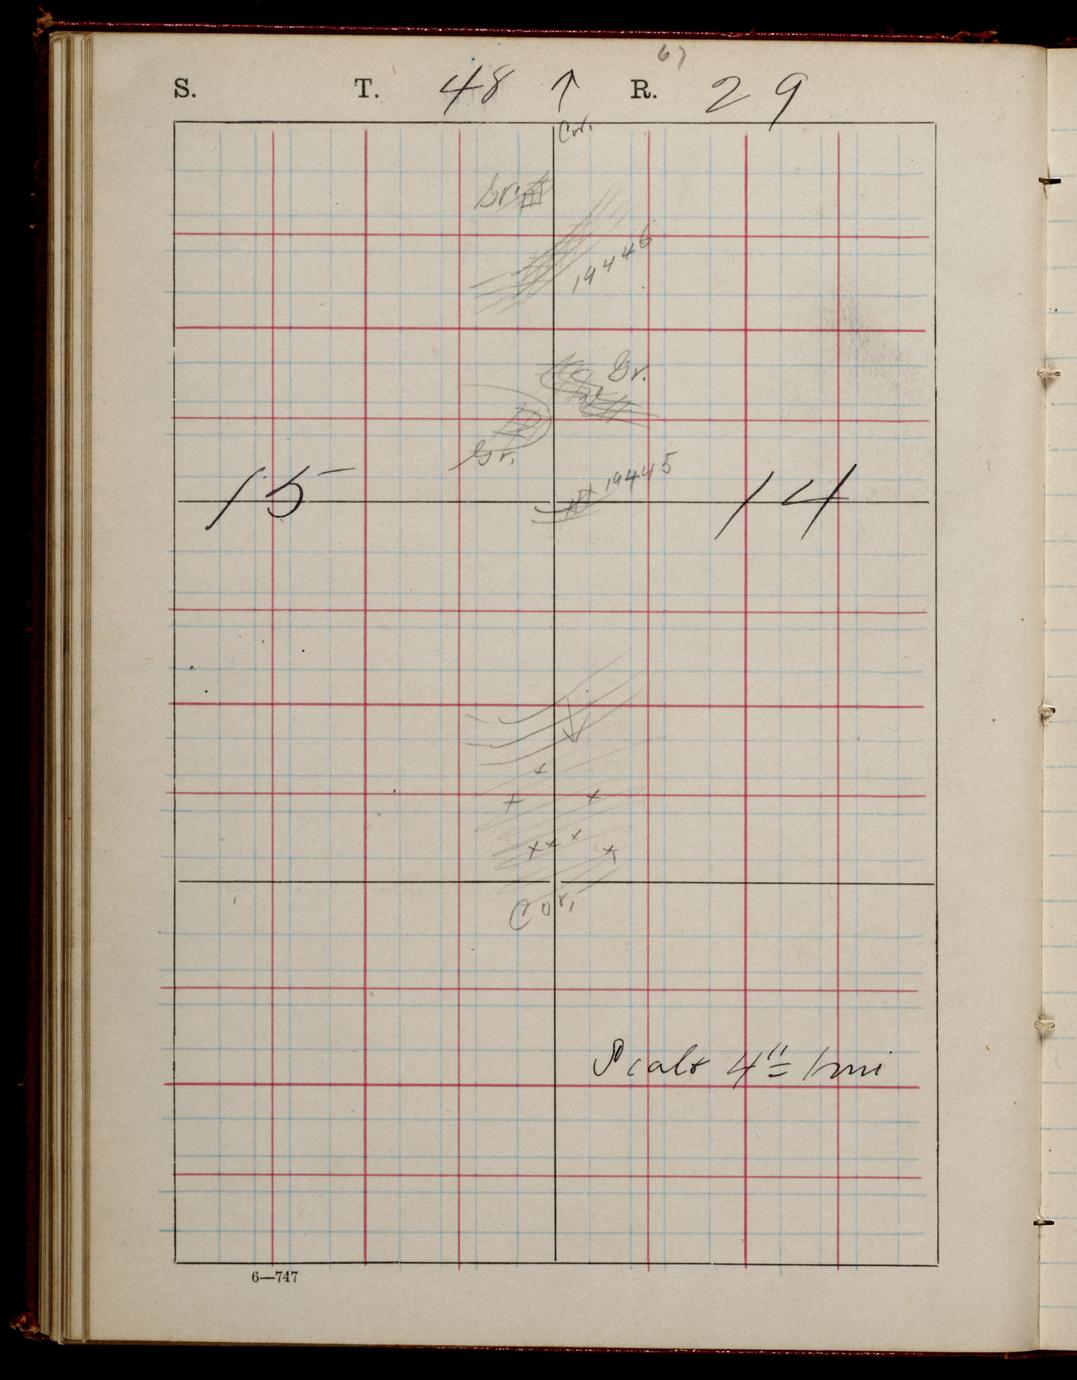 67
S. T. 48 ↑ R. 29
Cor.
Gr.
19446
Gr.
Gr.
19445
15 14
Cor.
Scale 4"= 1 mi
6—747